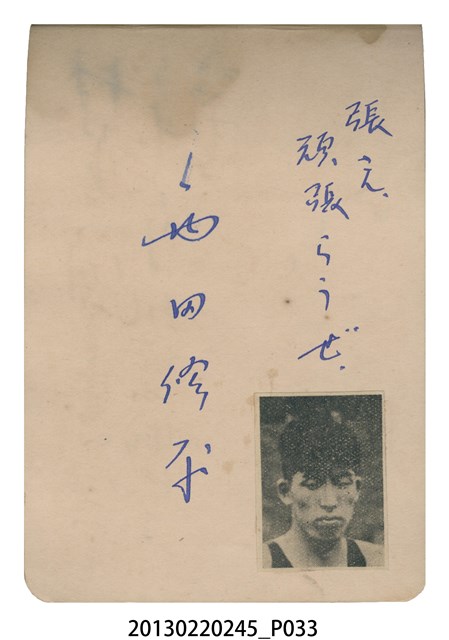 張兄、
頑張らうぜ、
池田修平
20130220245_P033